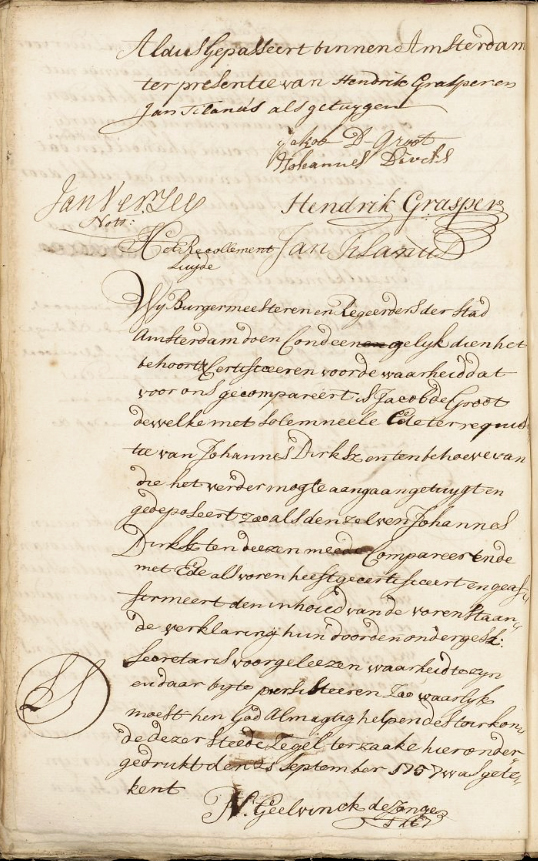 Aldus Gepasseert binnen Amsterdam
ter presentie van Hendrik Grasper en
Jan Silanus als getuygen
Jakob D Groot
Johannes Dircks
Jan Verley
Hendrik Grasper
Nots:
Het Recollement
Jan Silanus
Luyde
Wij Burgermeesteren en Regeerders der Stad
Amsterdam doen Condeen gelyk dien het
behoort & Certificeeren voor de waarheid dat
voor ons gecompareert is Jacob de Groot
dewelke met solemneele Ede ter requisi
tie van Johannes Dirksz en ten behoeve van
die het verder mogte aangaan getuygt en
gedeposeert zoo als denzelven Johannes
Dirksz ten deezen meede Compareerende
met Ede als voren heeft gecertificeert en geaf
firmeert den inhoud van de vorenstaan
de verklaring hun door den ondergesz:
Secretaris voorgeleezen waarheid te zyn
en daar by te persisteeren Zoo waarlyk
moest hen God Almagtig helpen des t'oirkon
de dezer Steede Zegel ter zaake hieronder
gedrukt den September 1757 was gete
kent
N. Geelvinck de Jonge